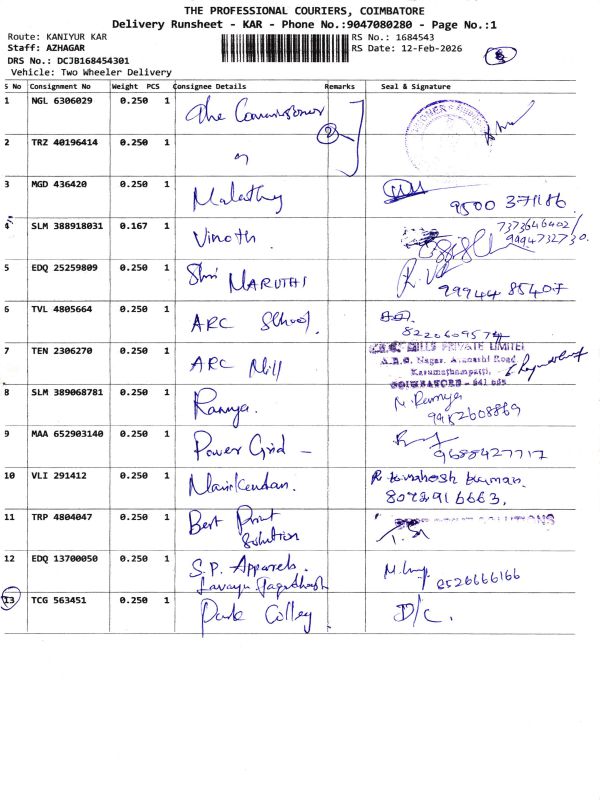 THE PROFESSIONAL COURIERS, COIMBATORE
Delivery Runsheet - KAR - Phone No.:9047080280 - Page No.:1
Route: KANIYUR KAR
RS No.: 1684543
Staff: AZHAGAR
RS Date: 12-Feb-2026
DRS No.: DCJB168454301
Vehicle: Two Wheeler Delivery
S No Consignment No Weight PCS Consignee Details Remarks Seal & Signature
1 NGL 6306029 0.250 1 The Commissioner
2 TRZ 40196414 0.250 1 2
3 MGD 436420 0.250 1 Malathy
4 SLM 388918031 0.167 1 Vinoth 7373646402/
9994732730.
5 EDQ 25259809 0.250 1 Shri MARUTHI 99944 85407
6 TVL 4805664 0.250 1 ARC School.
7 TEN 2306270 0.250 1 ARC Mill MILLS PRIVATE LIMITED
Nagar, Avanashi Road
Karumathampatti,
COIMBATORE - 641
8 SLM 389068781 0.250 1 Ramya. M. Ramya
9 MAA 652903140 0.250 1 Power Grid - 9688427717
10 VLI 291412 0.250 1 Manikandan.
11 TRP 4804047 0.250 1 Best Print
Solution SOLUTIONS
12 EDQ 13700050 0.250 1 S.P. Apparels. 8526666166
13 TCG 563451 0.250 1 Park Colley D/C.